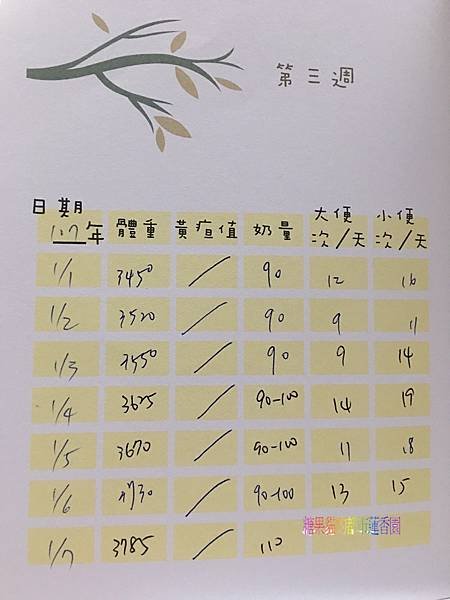 第三週
日期 107年 體重 黃疸值 奶量 大便次/天 小便次/天
1/1 3450 / 90 12 16
1/2 3520 / 90 9 11
1/3 3550 / 90 9 14
1/4 3625 / 90-100 14 19
1/5 3670 / 90-100 11 18
1/6 3730 / 90-100 13 15
1/7 3785 / 110